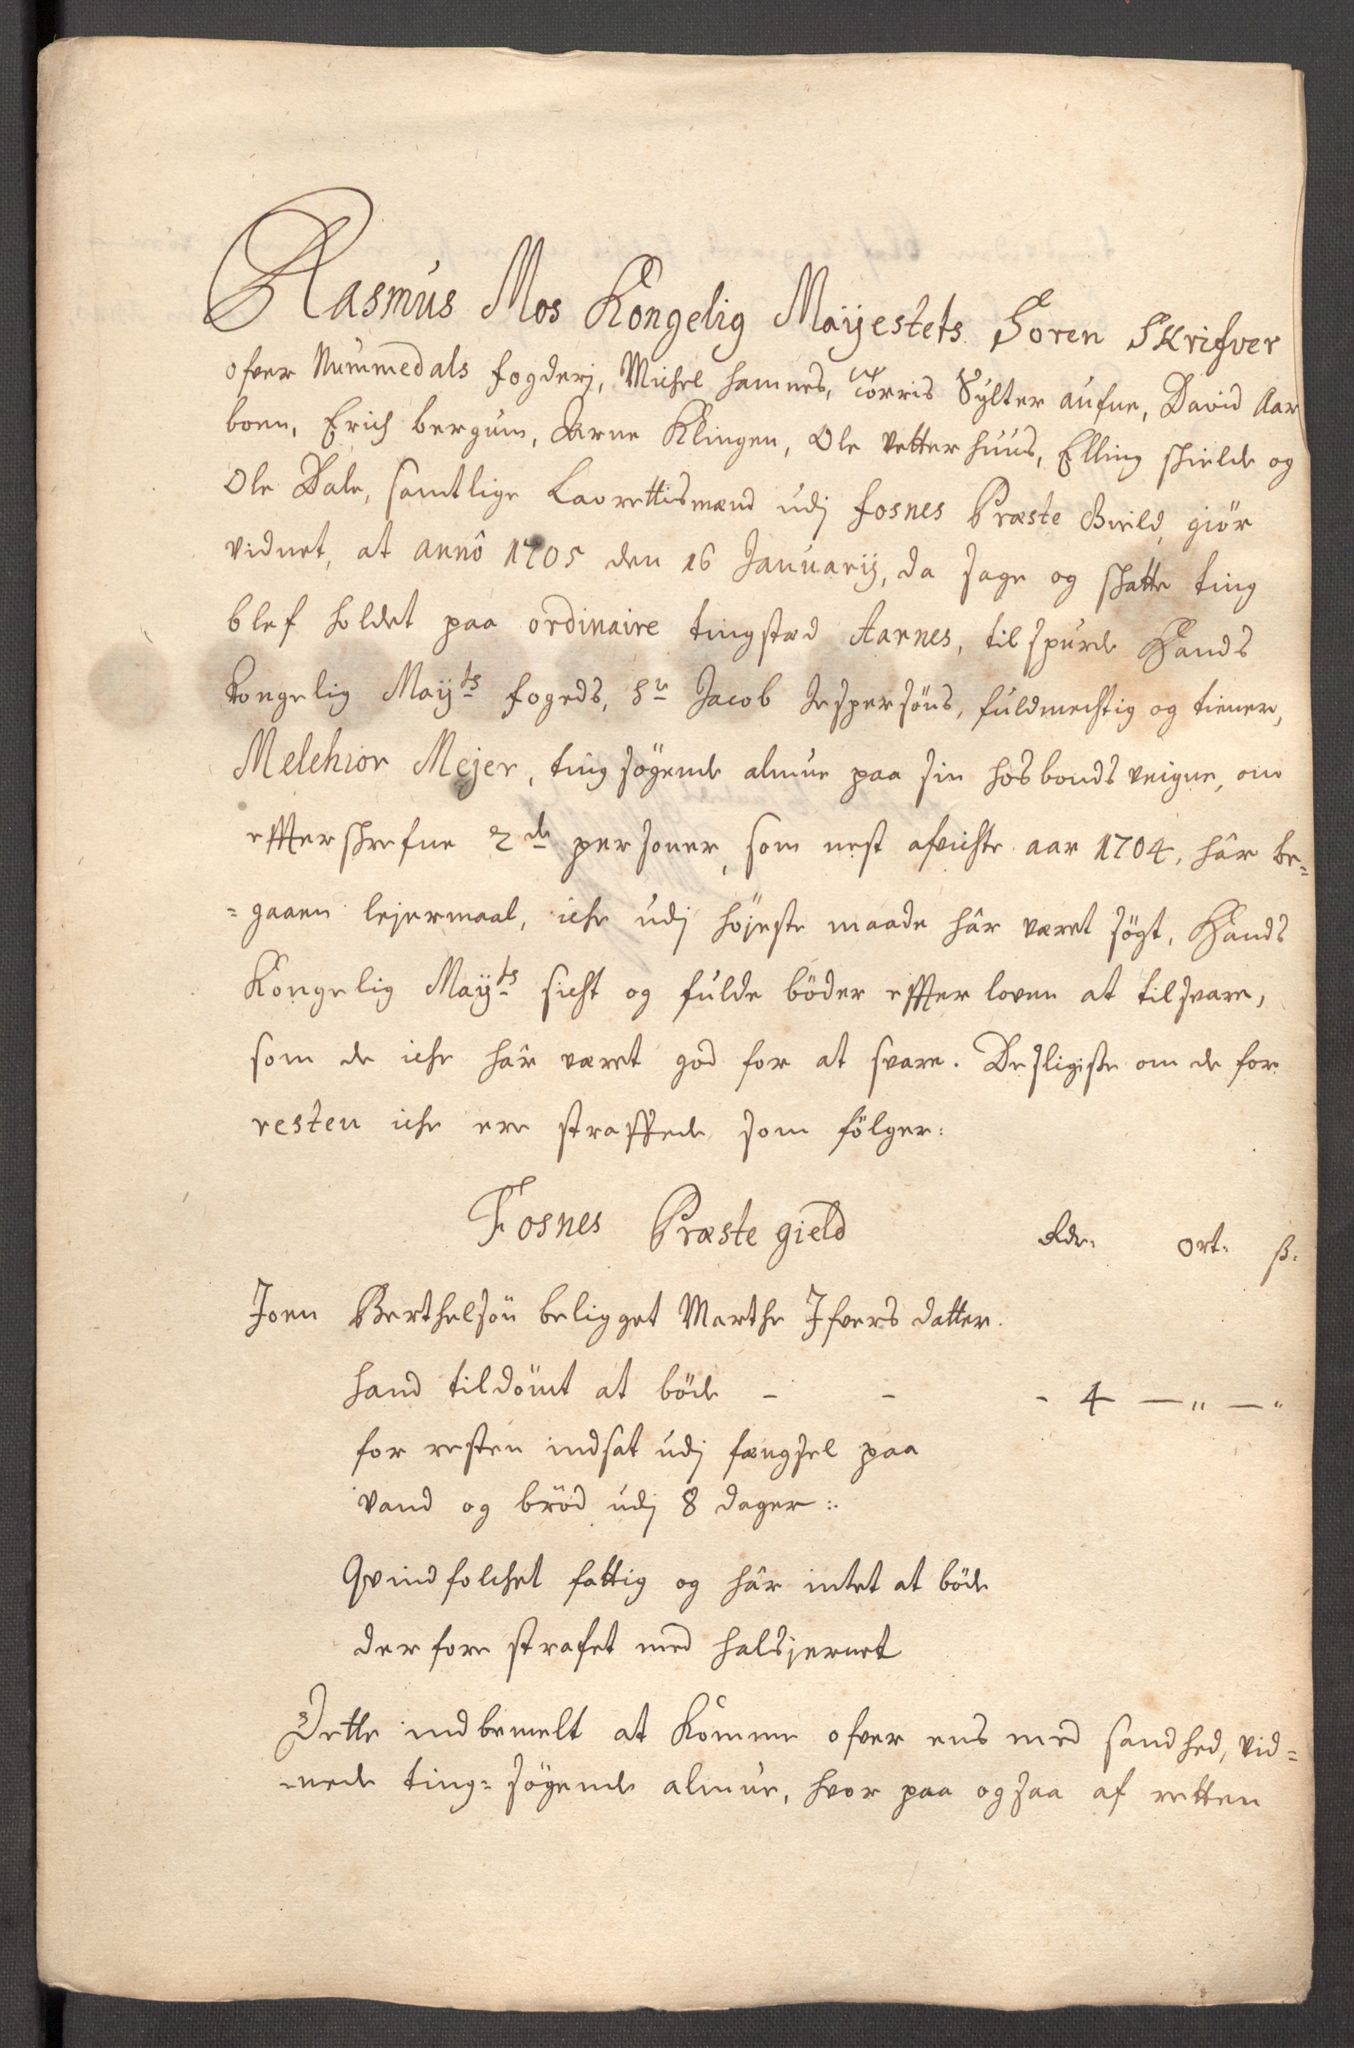 Rasmus Mos Kongelig Mayjestets Soren Skrifver
ofver Nummedals fogderj, Michel hamnes, Torris Sylter aufne, David Aar
boen, Erich bergum, Arne Klingen, Ole vetterhuus, Elling schielde og
Ole Dale, samtlige Laurettismænd udj fosnes Præste Gield, giör
vidnet, at anno 1705 den 16 Januarij, da sage og schatte ting
blef holdet paa ordinaire tingstæd Aarnes, tilspurde Hands
Kongelig Mayts fogeds, Sr Jacob Jespersöns, fuldmechtig og tiener,
Melchior Mejer, tingsögende almue paa sin hosbonds veigne, om
effterschrefne 2de personer, som nest afvichte aar 1704, hâr be-
-gaaen lejermaal, iche udj höjeste maade hâr været sögt, Hands
Kongelig Mayts sicht og fulde böder effter loven at tilsvare,
som de iche hâr været god for at svare. Desligeste om de for
resten iche ere straffede som fölger:
Fosnes Præste gield Rdr. Ort. ß.
Joen Berthelsön beligget Marthe Ifvers datter.
hand tildömt at böde - - - 4 — " — "
for resten indsat udj fængsel paa
vand og bröd udj 8 dager:.
Qvindfolchet fattig og hâr intet at böde
derfore strafet med halsjernet
Dette indbemelt at komme ofver ens med sandhed, vid-
-nede ting-sögende almue, hvor paa ogsaa af retten